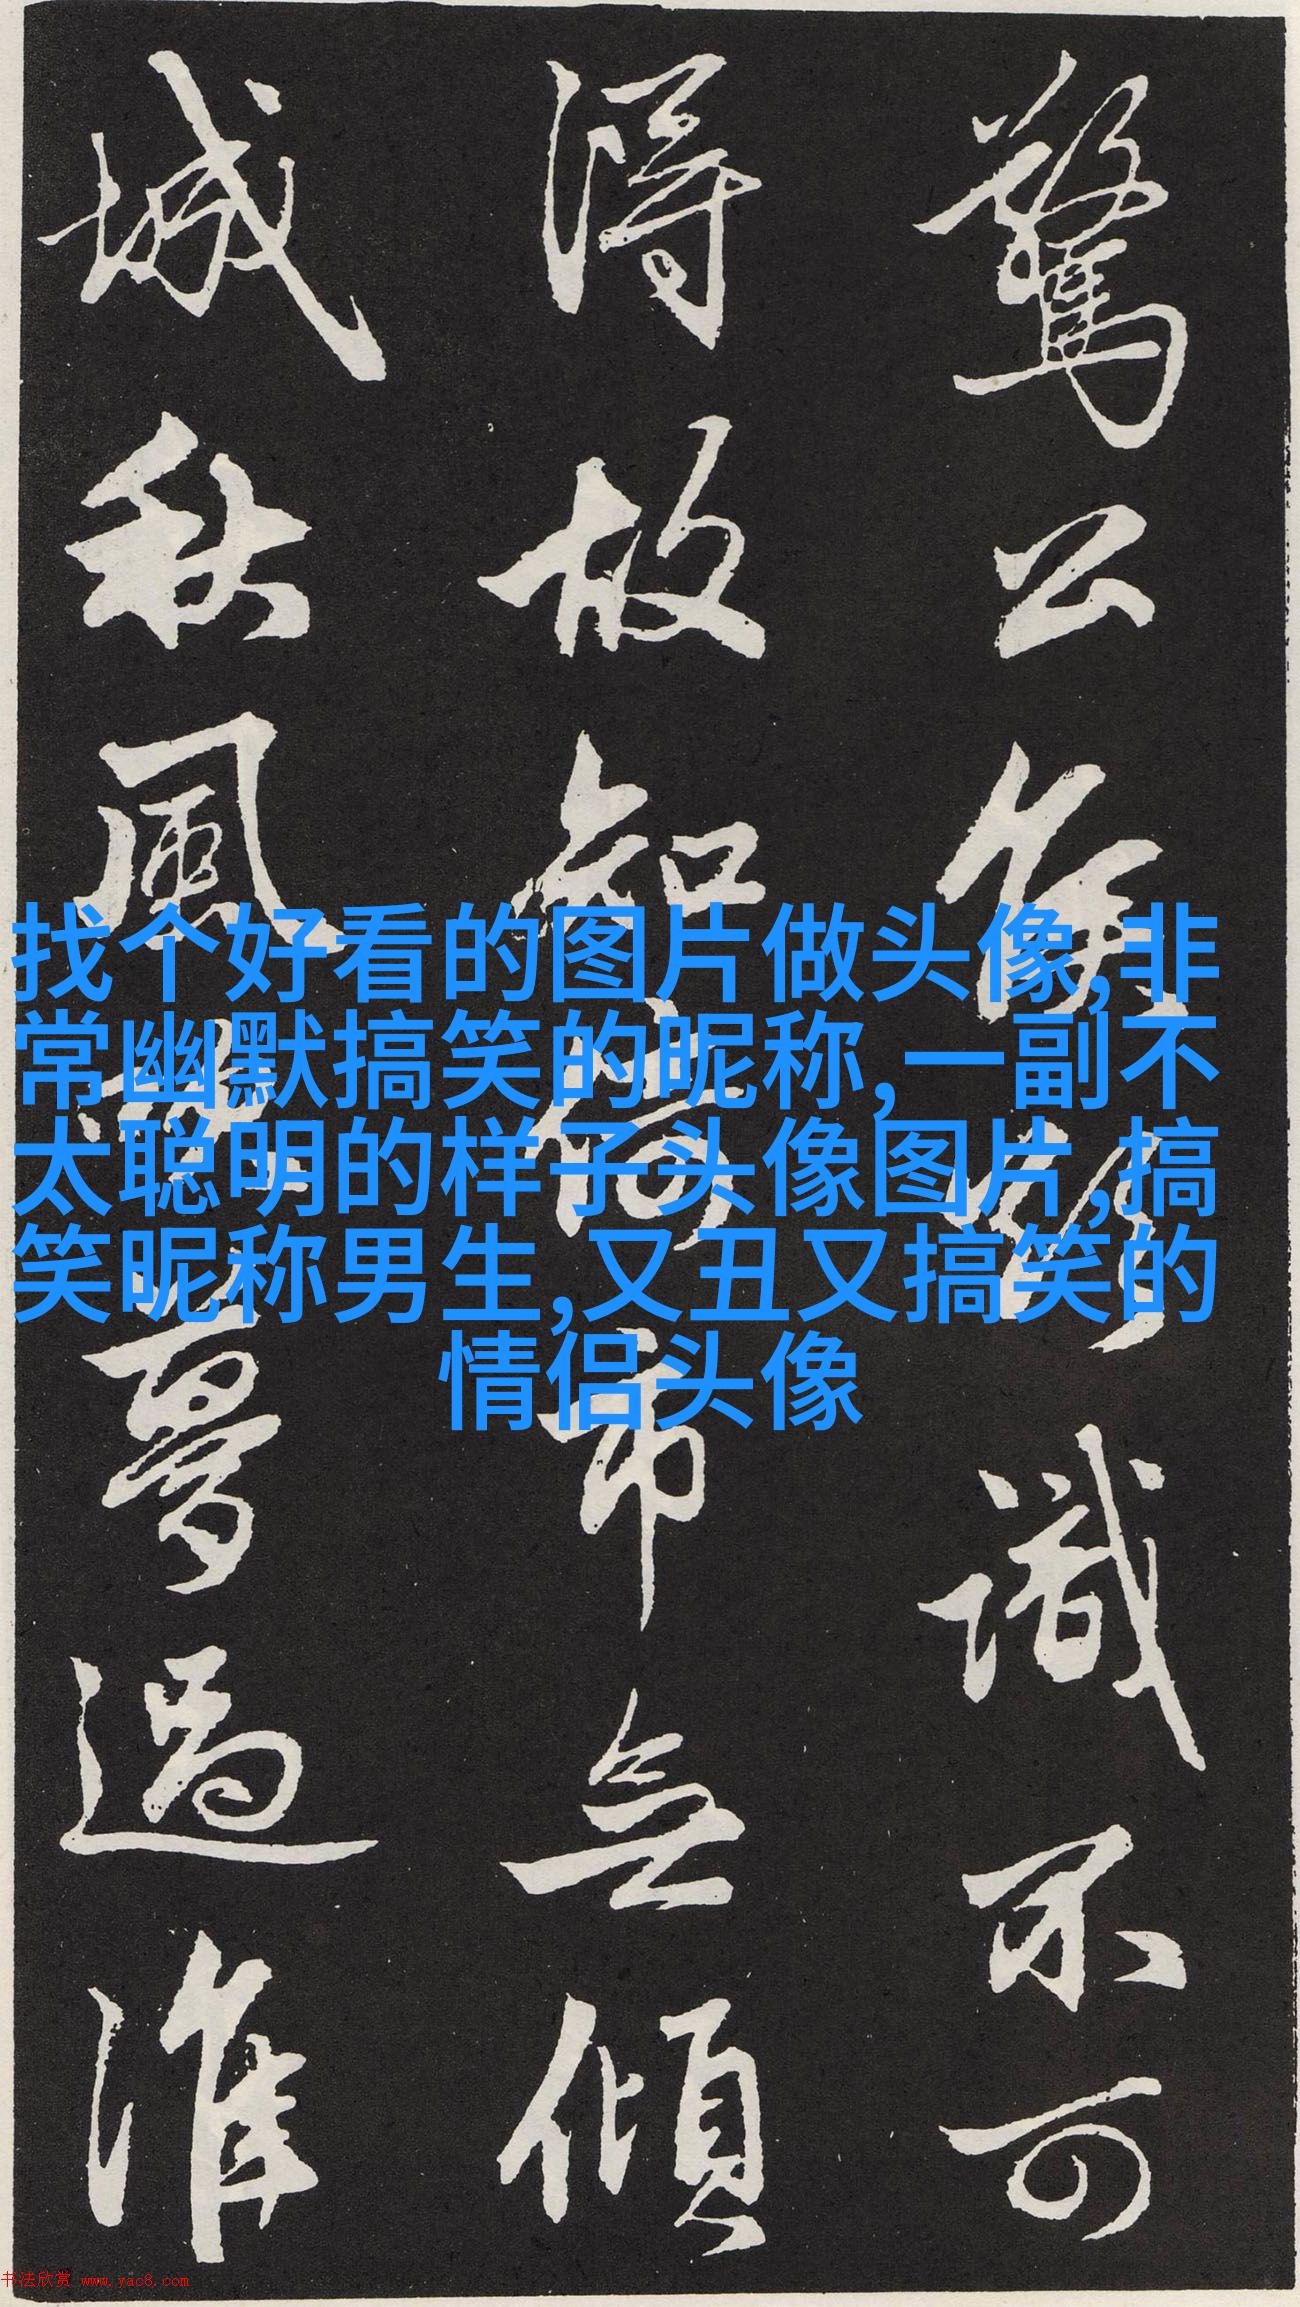 驚公識不可
得故知倚市无傾
城秋風夢過淮
找个好看的图片做头像,非
常幽默搞笑的昵称,一副不
太聪明的样子头像图片,搞
笑昵称男生,又丑又搞笑的
情侣头像
书法欣赏 www.yac8.com